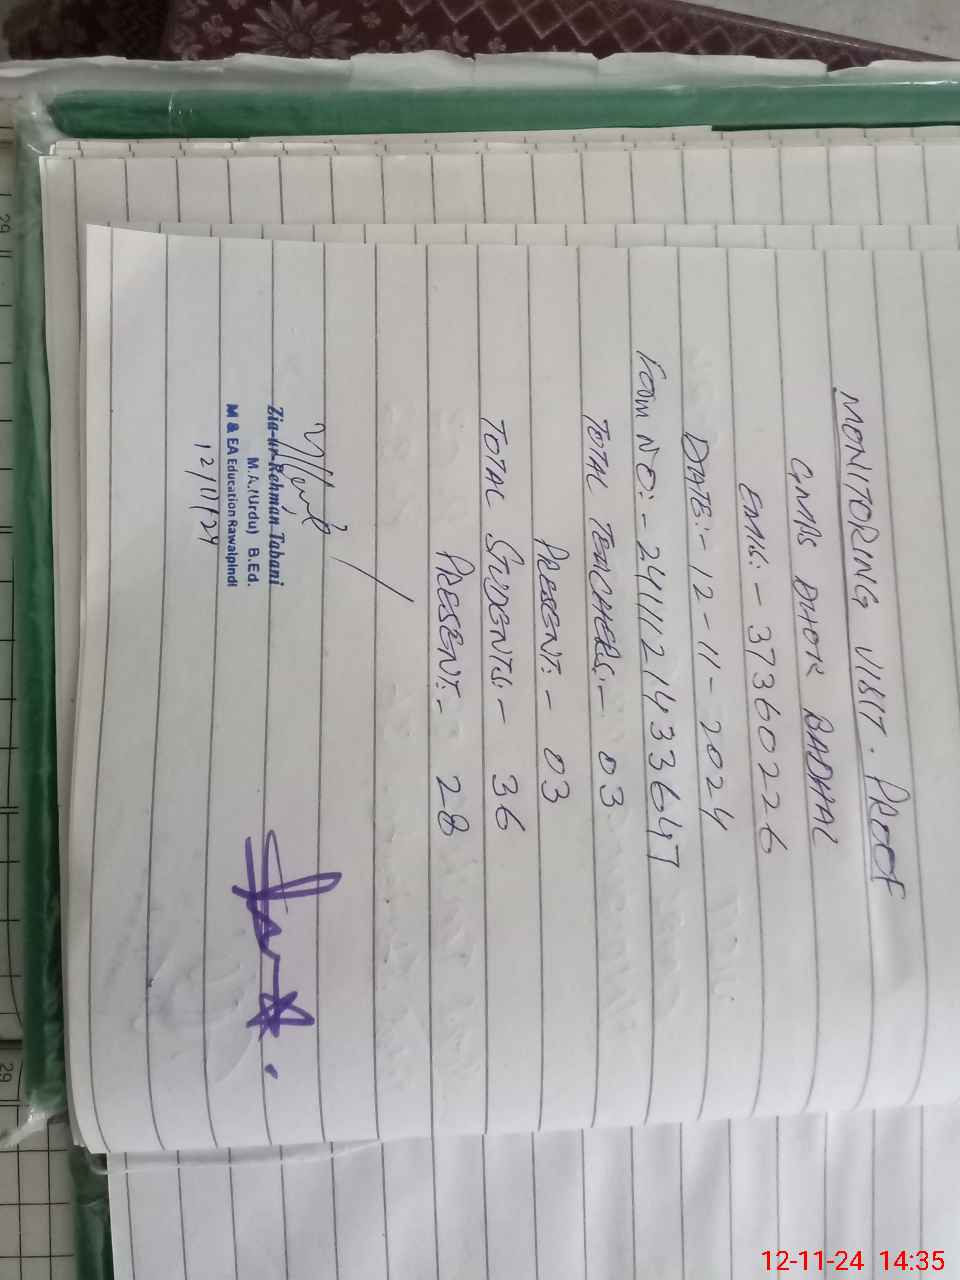 MONITORING VISIT. PROOF
GMPS DHOK BADHAL
EMIS:- 37360226
DATE:- 12-11-2024
FORM NO:- 241112143364T
TOTAL TEACHERS:- 03
PRESENT:- 03
TOTAL STUDENTS:- 36
PRESENT:- 28
Zia-ur-Rehman Tabani
M.A.(Urdu) B.Ed.
M & EA Education Rawalpindi
12/11/24
29
29
12-11-24 14:35